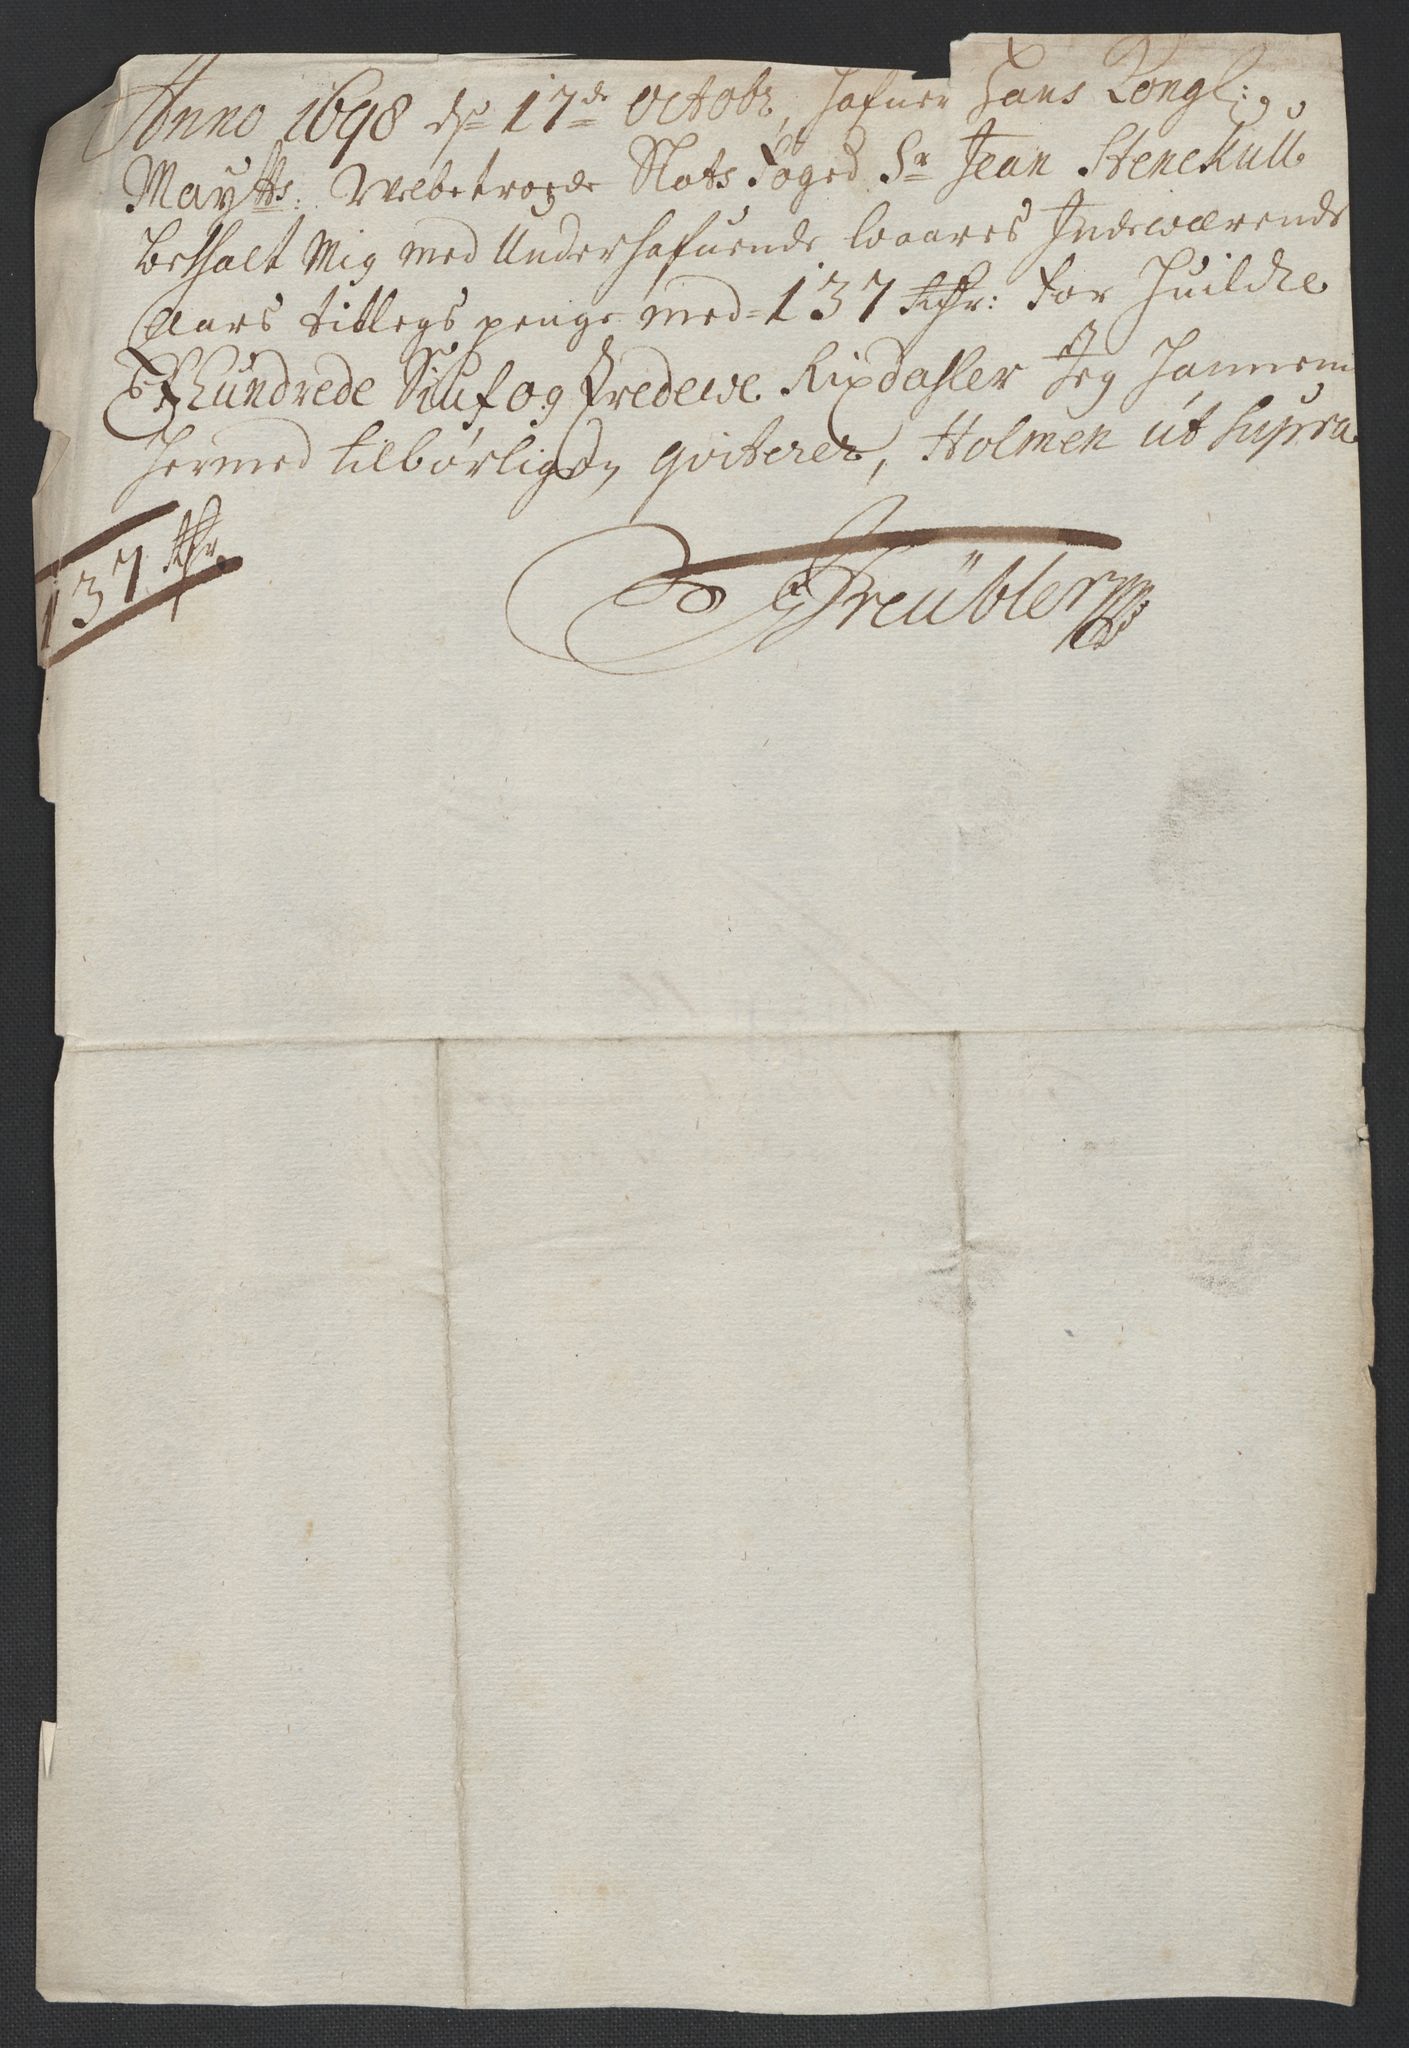 Anno 1698 dȝ 17de Octobr, hafuer Hans Kongl:
Maytts: Welbetroede Slots Foged Sr Jean Stenckull
bethalt Mig med Underhafuende waares Indewærende
Aars tillegs penge med 137 Rdr: For Huilcke
Et Hundrede Siuf og Tredewe Rixdahler Jeg Hannem
hermed tilbørligen qviterer, Holmen ut supra
137 Rdr
Treübler